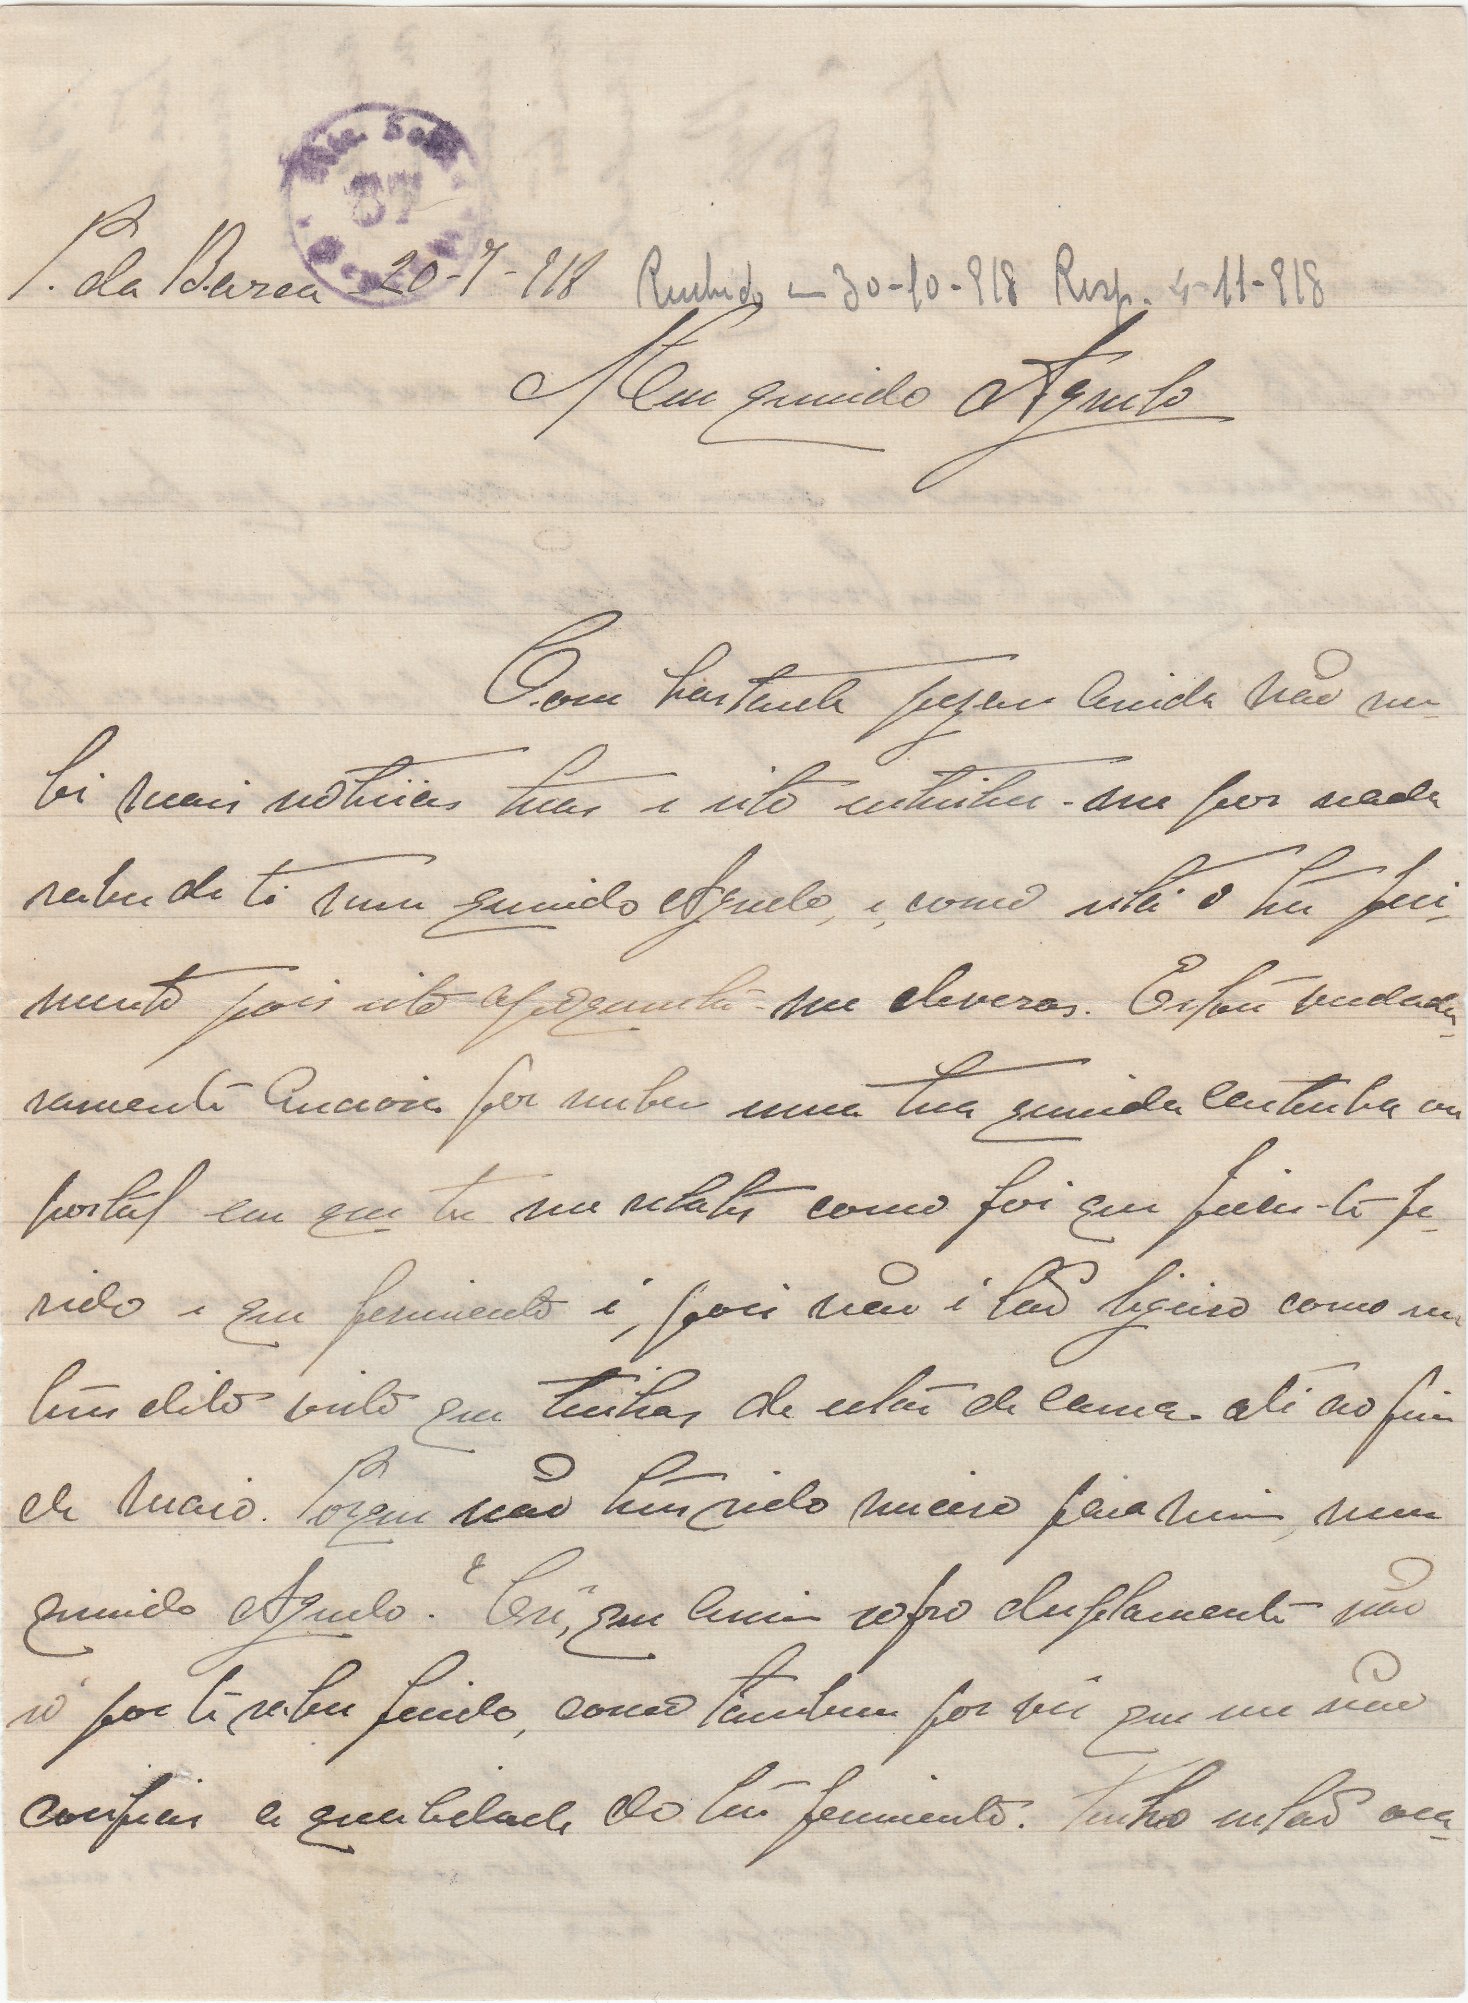 87
P. da Barca 20-7-918 Recebido em 30-10-918 Resp. 4-11-918
Meu querido Agnelo
Com bastante pezar ainda não rece-
bi mais noticias tuas e isto entristece-me por nada
saber de ti meu querido Agnelo, e, como está o teu feri-
mento pois isto apoquenta-me deveras. Estou verdadei-
ramente anciosa por receber uma tua querida cartinha ou
postal em que tu me relates como foi que ficas-te fe-
rido e que ferimento é, pois não é tão ligeiro como me
tens dito visto que tinhas de estar de cama até ao fim
de Maio. Porque não tens sido sincero para mim, meu
querido Agnelo. Crê, que assim sofro duplamente não
só por te saber ferido, como tambem por vêr que me não
confias a qualidade do teu ferimento. Tenho estado